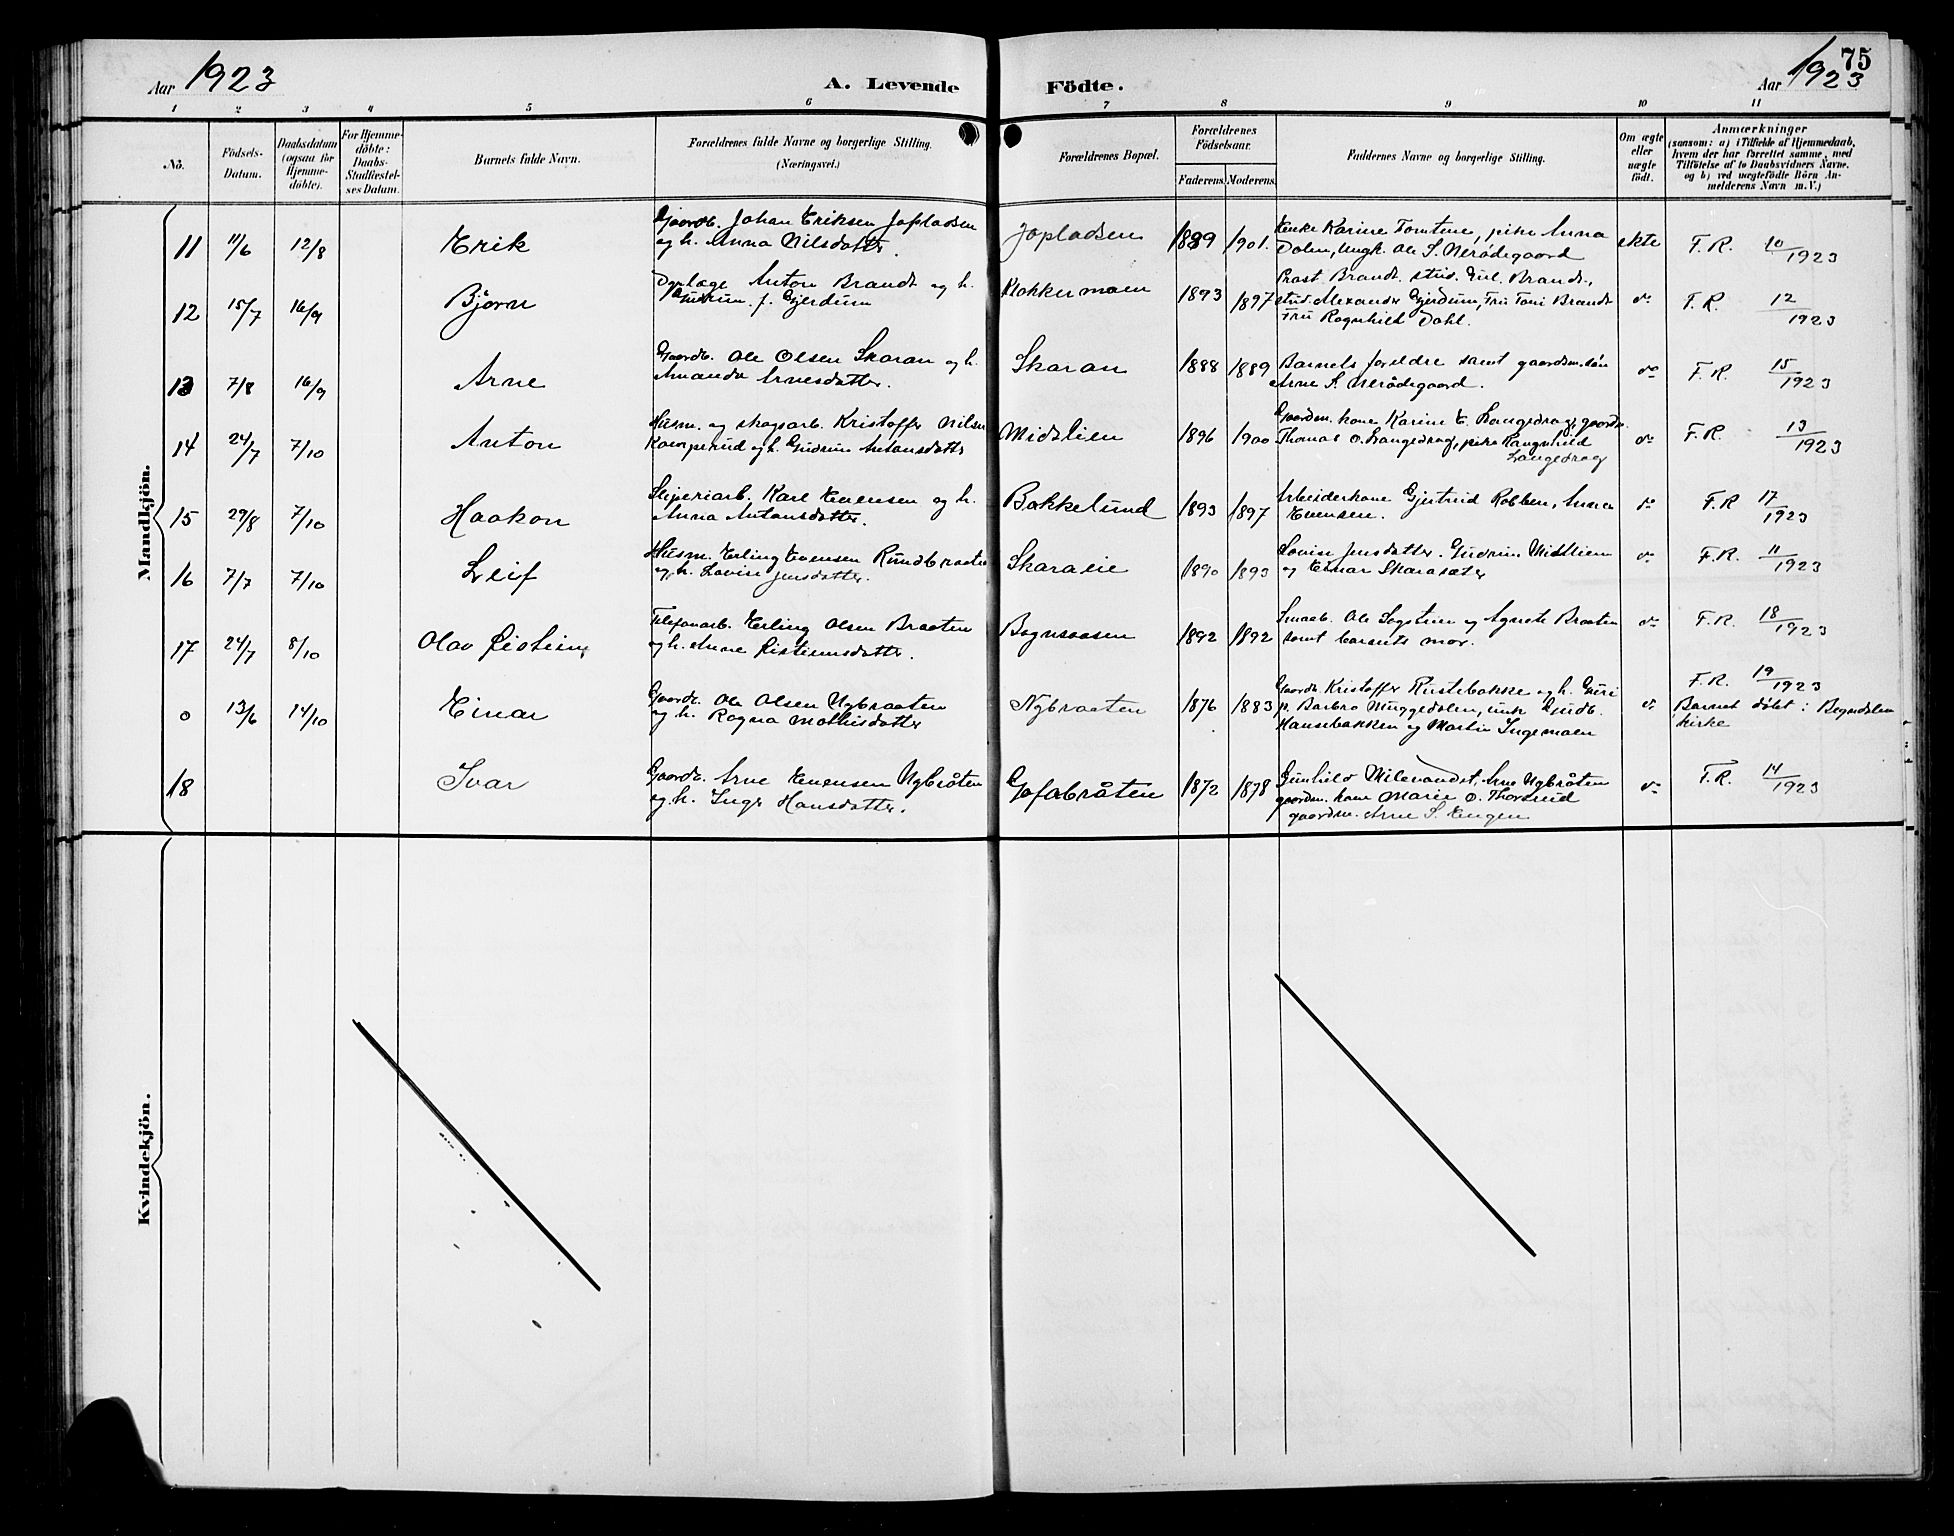 Aar 1923
A. Levende Födte.
Aar 1923
75
1 2 3 4 5 6 7 8 9 10 11
Nö.
Födsels-Datum.
Daabsdatum (ogsaa för Hjemme-döbte).
For Hjemme-döbte: Daabs-Stadfæstel-ses Datum.
Barnets fulde Navn.
Forældrenes fulde Navne og borgerlige Stilling. (Næringsvei.)
Forældrenes Bopæl.
Forældrenes Födselsaar.
Faderens. Moderens.
Faddernes Navne og borgerlige Stilling.
Om ægte eller uægte födt.
Anmærkninger
(saasom: a) i Tilfælde af Hjemmedaab, hvem der har forrettet samme, med Tilföielse af to Daabsvidners Navne. og b) ved uægtefödte Börn An-melderens Navn m. V.)
Mandkjön.
11 11/6 12/8 Erik
Gaardb. Johan Eriksen Jopladsen
og h. Anna Nilsdatter.
Jopladsen 1889 1901.
Enke Karine Tomtene, pike Anna
Dolen, Ungk. Ole S. Nerødegaard
ekte F. R. 10/1923
12 15/7 16/9 Bjørn
Dyrlæge Anton Brandt og h.
Gudrun f. Gjerdrum
Klokkermoen 1893 1897
Prost Brandt, stud. Gul. Brandt,
stud. Alexander Gjerdrum, Fru Toni Brandt
Fru Ragnhild Dahl.
do F. R. 12/1923
13 7/8 16/9 Arne
Gaardb. Ole Olsen Skaran og h.
Amanda Arnesdatter.
Skaran 1888 1889
Barnets foreldre samt gaardm.søn
Arne S. Nerødegaard.
do F. R. 15/1923
14 24/7 7/10 Anton
Husm. og skogsarb. Kristoffer Nilsen
Kamperud og h. Gudrun Antonsdatter
Midtlien 1896 1900
Gaardm. kone Karine E. Langedrag, gaardm.
Thomas O. Langedrag, pike Rangnhild
Langedrag
do F. R. 13/1923
15 29/8 7/10 Haakon
Sliperiarb. Karl Evensen og h.
Anna Antonsdatter.
Bakkelund 1893 1897
Arbeiderkone Gjertrud Robben, Anna
Evensen.
do F. R 17/1923
16 7/7 7/10 Leif
Husm. Erling Evensen Rundbraaten
og h. Lovise Jensdatter.
Skaraeie 1890 1893
Lovise Jensdatter. Gudrun Midtlien
og Einar Skarasæter
do F. R. 11/1923
17 24/7 8/10 Olav Øistein
Telefonarb. Erling Olsen Braaten
og h. Anne Øisteinsdatter.
Bagnsaasen 1892 1892
Smaab. Ole Sagstuen og Agnete Braaten
samt barnets mor.
do F. R. 18/1923
0 13/6 14/10 Einar
Gaardb. Ole Olsen Nybraaten
og h. Ragna Mathisdatter
Nybraaten 1876 1883
Gaardb. Kristoffer Rustebakke og h. Guri
p. Barbro Muggedalen, unk Gudb.
Hansebakken og Martin Ingemoen
do F. R. 19/1923
Barnet døbt i Begnadalen
kirke
18 Ivar
Gaardb. Arne Evensen Nybråten
og h. Inger Hansdatter.
Gofabråten 1872 1878
Gunhild Milevandet, Arne Nybråten
gaardm. kone Marie O. Thorsrud
gaardm. Arne S. Engen
do F. R. 14/1923
Kvindekjön.